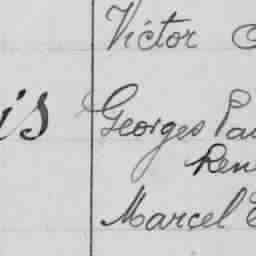 Victor
is Georges Pau
René
Marcel